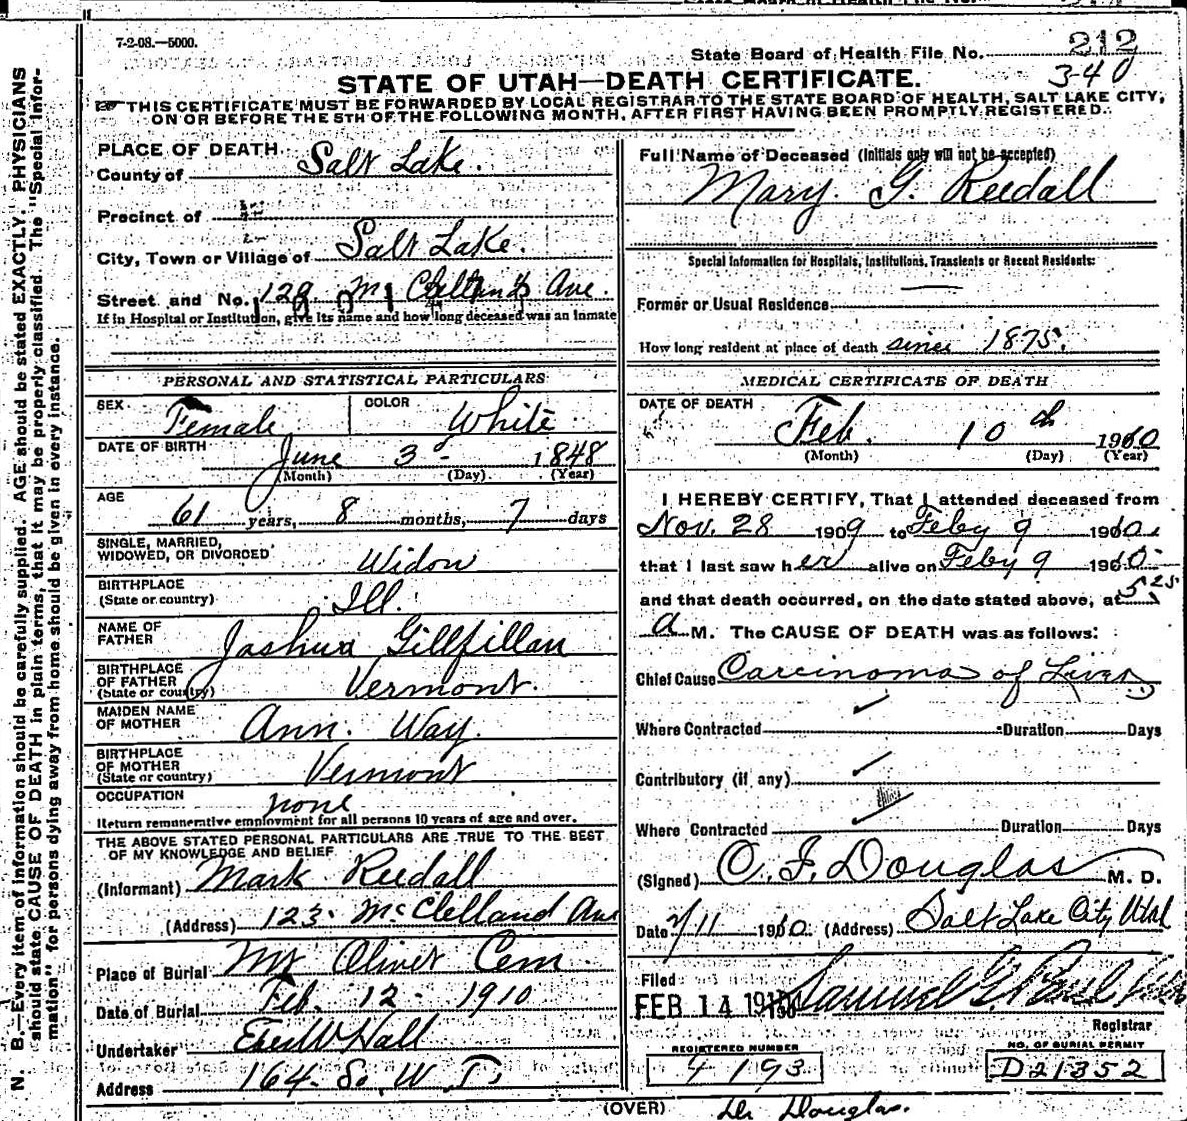 7-2-08.—5000.
State Board of Health File No. 212
340
STATE OF UTAH—DEATH CERTIFICATE.
THIS CERTIFICATE MUST BE FORWARDED BY LOCAL REGISTRAR TO THE STATE BOARD OF HEALTH, SALT LAKE CITY,
ON OR BEFORE THE 5TH OF THE FOLLOWING MONTH, AFTER FIRST HAVING BEEN PROMPTLY REGISTERED.
N. B.—Every item of information should be carefully supplied. AGE should be stated EXACTLY. PHYSICIANS
should state CAUSE OF DEATH in plain terms, that it may be properly classified. The "Special Infor-
mation" for persons dying away from home should be given in every instance.
PLACE OF DEATH
County of Salt Lake.
Precinct of
City, Town or Village of Salt Lake.
Street and No. 129 Ave.
If in Hospital or Institution, give its name and how long deceased was an inmate
PERSONAL AND STATISTICAL PARTICULARS
SEX Female COLOR White
DATE OF BIRTH June 3 - 1848
(Month) (Day) (Year)
AGE
61 years, 8 months, 7 days
SINGLE, MARRIED,
WIDOWED, OR DIVORCED Widow
BIRTHPLACE
(State or country) Ill.
NAME OF
FATHER Joshua Gillfillan
BIRTHPLACE
OF FATHER
(State or country) Vermont.
MAIDEN NAME
OF MOTHER Ann. Way.
BIRTHPLACE
OF MOTHER
(State or country) Vermont
OCCUPATION none
Return remunerative employment for all persons 10 years of age and over.
THE ABOVE STATED PERSONAL PARTICULARS ARE TRUE TO THE BEST
OF MY KNOWLEDGE AND BELIEF
(Informant) Mark Reedall
(Address) 123. McClelland Ave
Place of Burial Mt Olivet Cem
Date of Burial Feb. 12 - 1910
Undertaker Eber W Hall
Address 164 So. W. T.
Full Name of Deceased (Initials only will not be accepted)
Mary. G. Reedall
Special Information for Hospitals, Institutions, Transients or Recent Residents:
Former or Usual Residence —
How long resident at place of death since 1875.
MEDICAL CERTIFICATE OF DEATH
DATE OF DEATH
Feb. 10th 1910
(Month) (Day) (Year)
I HEREBY CERTIFY, That I attended deceased from
Nov. 28 1909 to Feby 9 1910
that I last saw her alive on Feby 9 1910
and that death occurred, on the date stated above, at 5.25
a M. The CAUSE OF DEATH was as follows:
Chief Cause Carcinoma of Liver
Where Contracted Duration Days
Contributory (if any)
Where Contracted Duration Days
(Signed) O. J. Douglas M. D.
Date 2/11 1910. (Address) Salt Lake City Utah
Filed
FEB 14 1910 Samuel G. Paul
Registrar
REGISTERED NUMBER NO. OF BURIAL PERMIT
4193 D21352
(OVER) Dr Douglas.